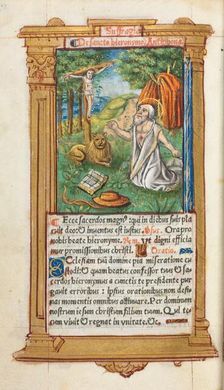 Suffragia.
De sancto hieronymo. Antiphona.
Ecce sacerdos magnꝰ qui in diebus suis pla
cuit deo et inuentus est iustus. Ora pro
nobis beate hieronyme. Ut digni efficia
mur promissionibus christi. Oratio.
Ecclesiam tuā domine pia miseratione cu
stodi quam beatus confessor tuus et sa
cerdos hieronymus a cunctis te presidente pur
gauit erroribus: ipsius orationibus non de
suis momentis omnibus Per dominum
nostrum iesum christum filium tuum. Qui te
cum viuit et regnat in vnitate.